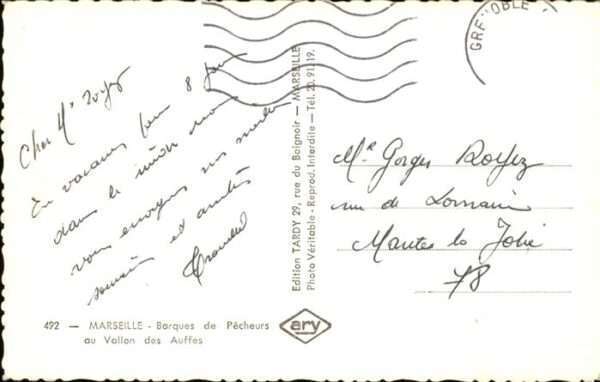 GRENOBLE
Cher Mr Royez
En vacances pour 8 jours
dans le midi nous
vous envoyons nos meilleurs
souvenirs et amitiés
Edition TARDY 29, rue du Baignoir - MARSEILLE
Photo Véritable - Reprod. Interdite - Tél. 20.91.19.
Mr Gorges Royez
rue de Lorraine
Mantes la Jolie
78
492 — MARSEILLE - Barques de Pêcheurs
au Vallon des Auffes
ary